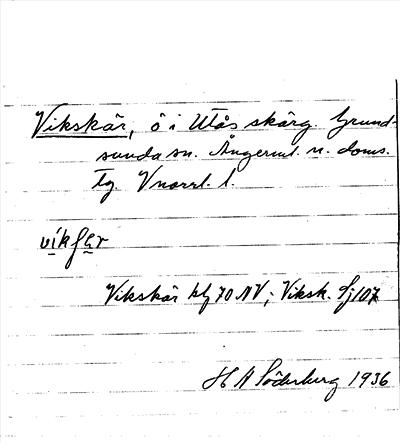 Vikskär, ö i Utås skärg. Grund-
sunda sn. Ångerml. n. doms.
tg Vnorrl. l.
vikʃär
Vikskär kbl 70 NV; Viksk. Sj 107
H A Söderberg 1936